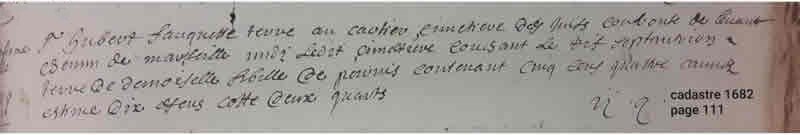 Sr hubert fauquette terre au cartier cimetiere des juifs confronte de levant
chemin de marseille midi ledit cimetiere couchant le septentrion
terre de demoiselle de contenant cinq cens quatre cannes
estimé dix escus cotte deux quarts
ij q.
cadastre 1682
page 111